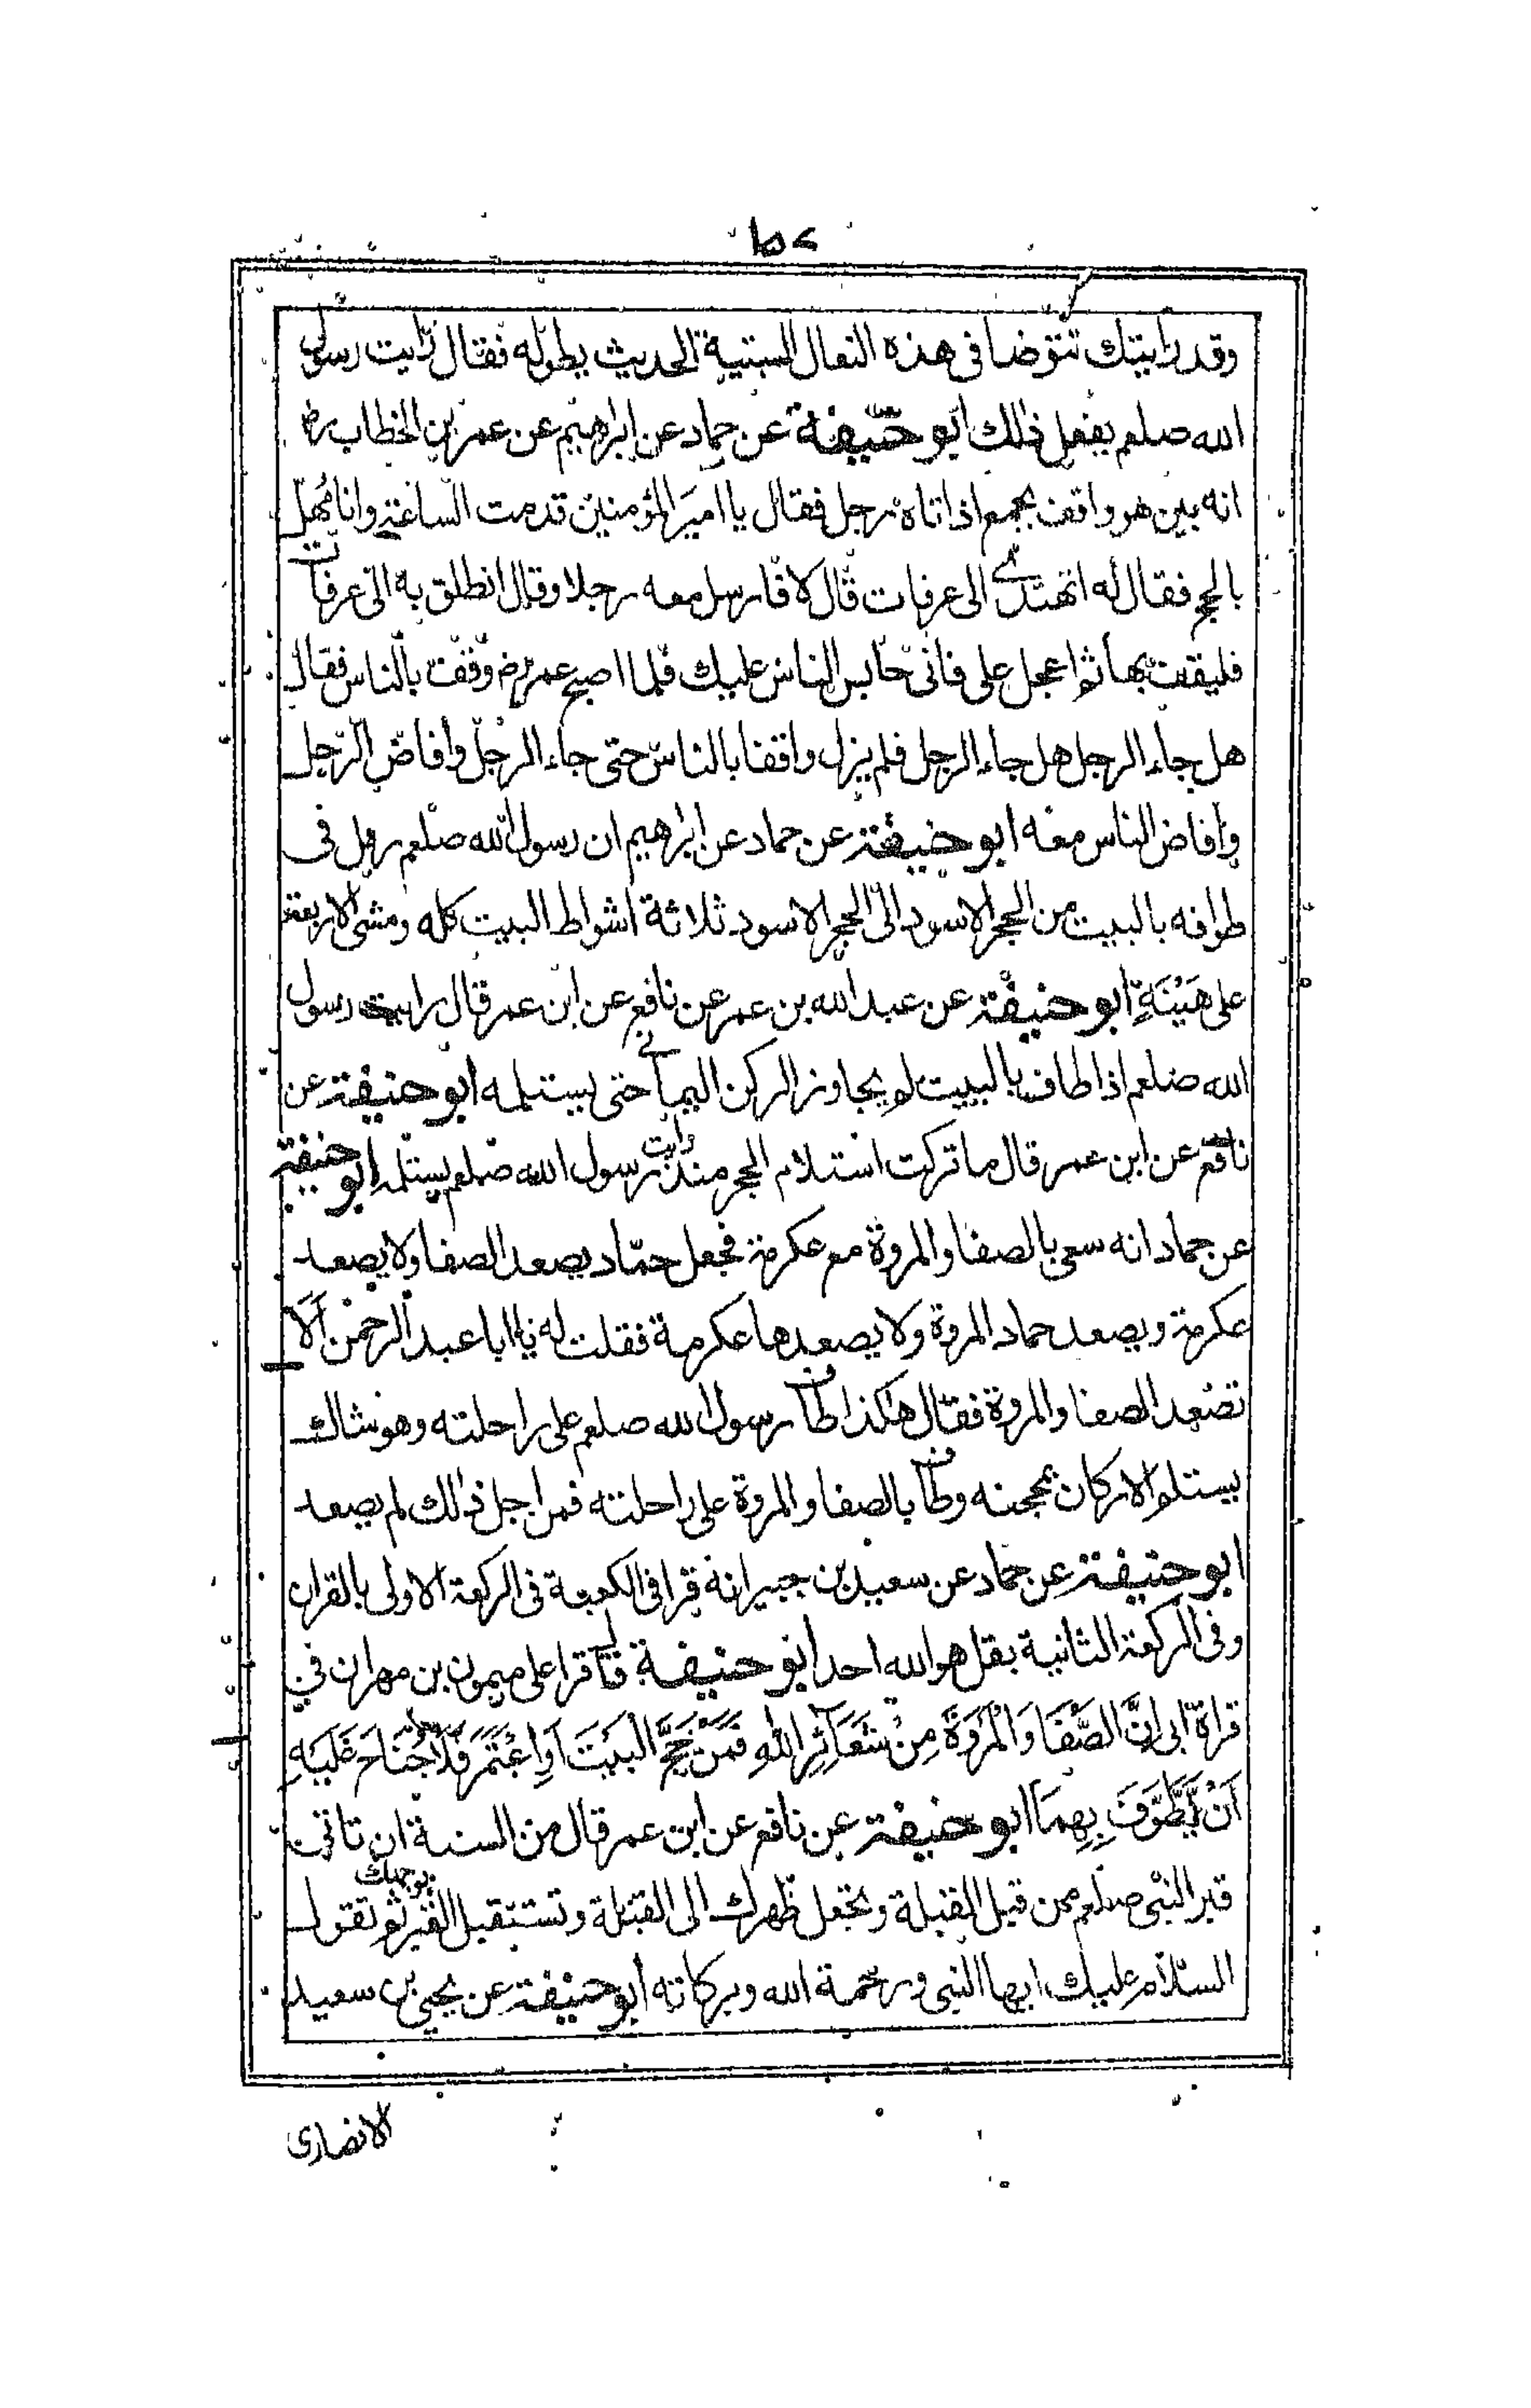 ١٥٧
وقد رايتك تتوضا فى هذه النعال السبتية الحديث بطوله فقال رايت رسول
الله صلعم يفعل ذلك ابو حنيفة عن حماد عن ابرهيم عن عمر بن الخطاب رض
انه بين هو واقف بجمع اذ اتاه رجل فقال يا امير المؤمنين قدمت الساعة وانا مُهلّ
بالحج فقال له اتهتدى الى عرفات قال لا فارسل معه رجلا وقال انطلق به الى عرفات
فليقف بها ثم اعجل على فانى حابس الناس عليك فلما اصبح عمر رض وقف بالناس فقال
هل جاء الرجل هل جاء الرجل فلم يزل واقفا بالناس حتى جاء الرجل وافاض الرجل
وافاض الناس معه ابو حنيفة عن حماد عن ابرهيم ان رسول الله صلعم رمل فى
طوافه بالبيت من الحجر الاسود الى الحجر الاسود ثلاثة اشواط البيت كله ومشى الاربعة
على هَيْنَةٍ ابو حنيفة عن عبد الله بن عمر عن نافع عن ابن عمر قال رايت رسول
الله صلعم اذا طاف بالبيت لم يجاوز الركن اليمانى حتى يستلمه ابو حنيفة عن
نافع عن ابن عمر قال ما تركت استلام الحجر منذ رايت رسول الله صلعم يستلمه ابو حنيفة
عن حماد انه سعى بالصفا والمروة مع عكرمة فجعل حمّاد يصعد الصفا ولا يصعد
عكرمة ويصعد حماد المروة ولا يصعدها عكرمة فقلت له يا ابا عبد الرحمن اَلَا
تصعد الصفا والمروة فقال هكذا طاف رسول الله صلعم على راحلته وهو شاك
يستلم الاركان بمحجنه وطاف بالصفا والمروة على راحلته فمن اجل ذلك لم يصعد
ابو حنيفة عن حماد عن سعيد بن جبير انه قرا فى الكعبة فى الركعة الاولى بالقران
وفى الركعة الثانية بقل هو الله احد ابو حنيفة قال قرا على ميمون بن مهران في
قراة ابى اِنَّ الصَّفَا وَالْمَرْوَةَ مِنْ شَعَآئِرِ اللهِ فَمَنْ حَجَّ الْبَيْتَ اَوِ اعْتَمَرَ فَلَا جُنَاحَ عَلَيْهِ
اَنْ يَّطَّوَّفَ بِهِمَا ابو حنيفة عن نافع عن ابن عمر قال من السنة ان تاتى
قبر النبى صلعم من قبل القبلة وتجعل ظهرك الى القبلة وتستقبل القبر بوجهك ثم تقول
السلام عليك ايها النبى ورحمة الله وبركاته ابو حنيفة عن يحيى بن سعيد
الانصارى